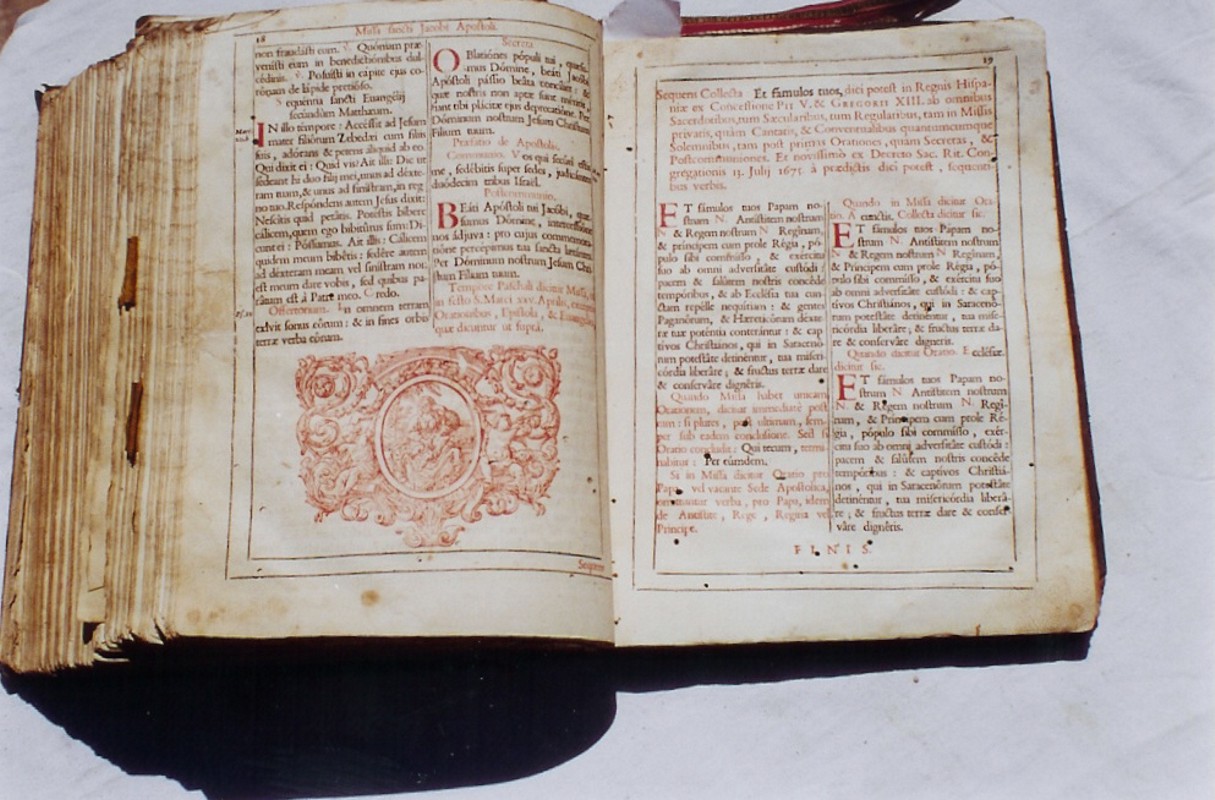 18
Missa sancti Jacobi Apostoli.
non fraudasti eum. ℣. Quóniam præ-
venisti eum in benedictiónibus dul-
cédinis. ℣. Posuísti in cápite ejus co-
rónam de lápide pretióso.
Sequéntia sancti Euangélij
secúndum Matthæum.
IN illo témpore: Accéssit ad Jesum
mater filiórum Zebedæi cum fíliis
suis, adórans & petens áliquid ab eo.
Qui dixit ei: Quid vis? Ait illi: Dic ut
sédeant hi duo fílij mei, unus ad déxte-
ram tuam, & unus ad sinístram, in reg
no tuo. Respóndens autem Jesus dixit:
Nescítis quid petátis. Potéstis bíbere
cálicem, quem ego bibitúrus sum? Di-
cunt ei: Póssumus. Ait illis: Cálicem
quidem meum bibétis: sedére autem
ad déxteram meam vel sinístram non
est meum dare vobis, sed quibus pa-
rátum est á Patre meo. Credo.
Offertorium. In omnem terram
exívit sonus eórum: & in fines orbis
terræ verba eórum.
Secreta.
OBlatiónes pópuli tui, quæsu-
mus Dómine, beáti Jacóbi
Apóstoli pássio beáta concíliet: &
quæ nostris non aptæ sunt méritis,
fiant tibi plácitæ ejus deprecatióne. Per
Dóminum nostrum Jesum Christum
Filium tuum.
Præfatio de Apostolis.
Communio. Vos qui secúti estis
me, sedébitis super sedes, judicántes
duódecim tribus Israël.
Postcommunio.
BEáti Apóstoli tui Jacóbi, quæ-
sumus Dómine, intercessióne
nos ádjuva: pro cujus commemora-
tióne percépimus tua sancta lætántes.
Per Dóminum nostrum Jesum Chri-
stum Filium tuum.
Tempore Paschali dicitur Missa, ut
in festo S. Marci xxv. Aprilis, exceptis
Orationibus, Epistola, & Euangelio,
quæ dicuntur ut suprá.
Sequens
19
Sequens Collecta Et fámulos tuos, dici potest in Regnis Hispa-
niæ ex Concessione PII V. & GREGORII XIII. ab omnibus
Sacerdotibus, tum Sæcularibus, tum Regularibus, tam in Missis
privatis, quàm Cantatis, & Conventualibus quantumcumque
Solemnibus, tam post primas Orationes, quam Secretas, &
Postcommuniones. Et novissimò ex Decreto Sac. Rit. Con-
gregationis 13. Julij 1675. à prædictis dici potest, sequenti-
bus verbis.
ET fámulos tuos Papam no-
strum N. Antístitem nostrum
N. & Regem nostrum N. Regínam,
& príncipem cum prole Régia, pó-
pulo sibi commísso, & exércitu
suo ab omni adversitáte custódi:
pacem & salútem nostris concéde
tempóribus, & ab Ecclésia tua cun-
ctam repélle nequítiam: & gentes
Paganórum, & Hæreticórum déxte-
ræ tuæ poténtia conterántur: & cap
tívos Christiános, qui in Saracenó-
rum potestáte detinéntur, tua miseri-
córdia liberáre; & fructus terræ dare
& conserváre dignéris.
Quando Missa habet unicam
Orationem, dicitur immediatè post
eam: si plures, post ultimam, sem-
per sub eadem conclusione. Sed si
Oratio concludit: Qui tecum, termi-
nabitur: Per eúmdem.
Si in Missa dicitur Oratio pro
Papa, vel vacante Sede Apostolica,
omittantur verba, pro Papa, idem
de Antistite, Rege, Regina vel
Principe.
Quando in Missa dicitur Ora-
tio. A cunctis. Collecta dicitur sic.
ET fámulos tuos Papam no-
strum N. Antístitem nostrum
N. & Regem nostrum N. Regínam,
& Príncipem cum prole Régia, pó-
pulo sibi commísso, & exércitu suo
ab omni adversitáte custódi: & cap-
tívos Christiános, qui in Saracenó-
rum potestáte detinéntur, tua mise-
ricórdia liberáre; & fructus terræ da-
re & conserváre dignéris.
Quando dicitur Oratio. Ecclésiæ.
dicitur sic.
ET fámulos tuos Papam no-
strum N. Antístitem nostrum
N. & Regem nostrum N. Regí-
nam, & Príncipem cum prole Ré-
gia, pópulo sibi commísso, exér-
citu suo ab omni adversitáte custódi:
pacem & salútem nostris concéde
tempóribus: & captívos Christiá-
nos, qui in Saracenórum potestáte
detinéntur, tua misericórdia liberá-
re; & fructus terræ dare & conser-
váre dignéris.
FINIS.